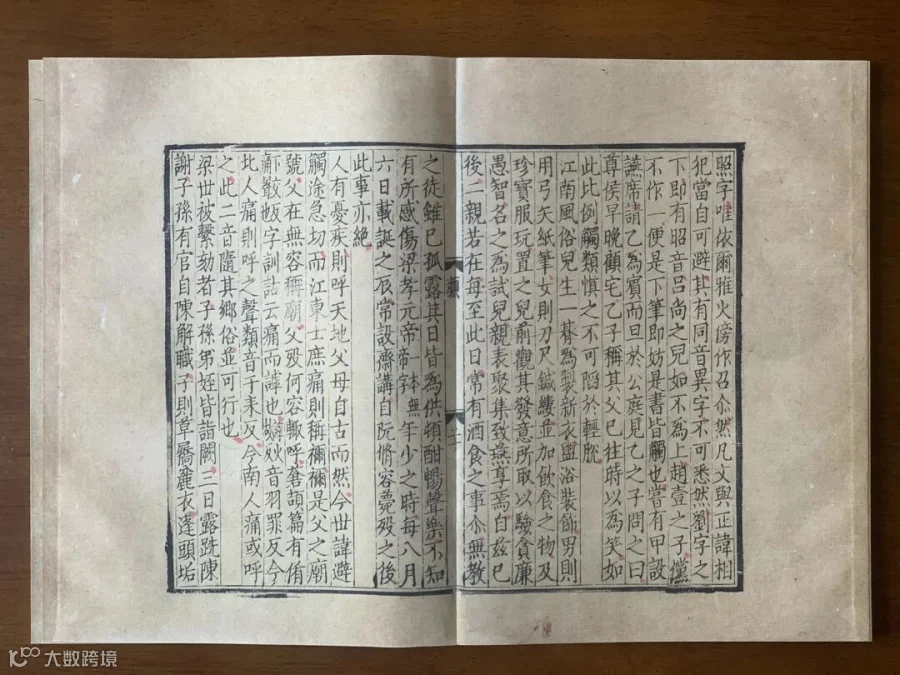 照字唯依爾雅火傍作召尒然凡文與正諱相
犯當自可避其有同音異字不可悉然劉字之
下即有昭音呂尚之兒如不為上趙壹之子儻
不作一便是下筆即妨是書皆觸也甞有甲設
讌席請乙為賓而旦於公庭見乙之子問之曰
尊侯早晚顧宅乙子稱其父已往時以為笑如
此比例觸類慎之不可陷於輕脫
江南風俗兒生一朞為製新衣盥浴裝飾男則
用弓矢紙筆女則刀尺鍼縷並加飲食之物及
珍寶服玩置之兒前觀其發意所取以驗貪廉
愚智名之為試兒親表聚集致讌享焉自茲已
後二親若在每至此日常有酒食之事尒無教
之徒雖已孤露其日皆為供頓酣暢聲樂不知
有所感傷梁孝元帝一本無帝字年少之時每八月
六日載誕之辰常設齋講自阮脩容薨歿之後
此事亦絶
人有憂疾則呼天地父母自古而然今世諱避
觸途急切而江東士庶痛則稱禰禰是父之廟
號父在無容稱廟父歿何容輙呼蒼頡篇有侑
字訓詁云痛而謼也音羽罪反今
北人痛則呼之聲類音于耒反今南人痛或呼
之此二音隨其鄉俗並可行也
梁世被繫劾者子孫弟姪皆詣闕三日露跣陳
謝子孫有官自陳解職子則草屩麄衣蓬頭垢
大数跨境